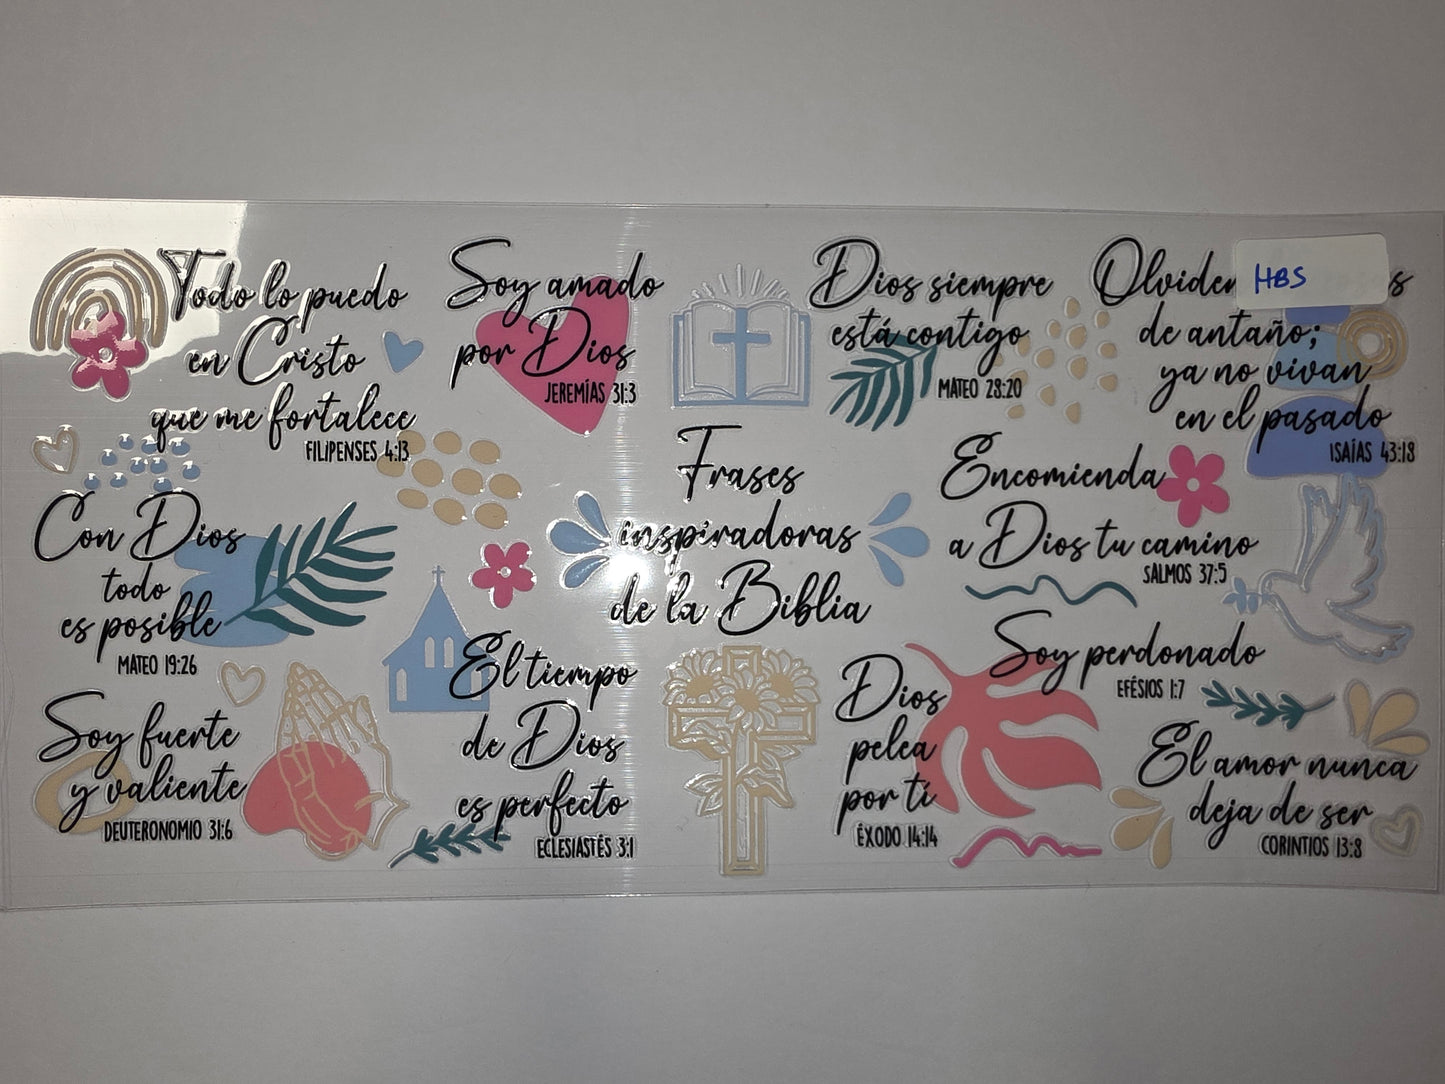 Todo lo puedo
en Cristo
que me fortalece
FILIPENSES 4:13
Soy amado
por Dios
JEREMÍAS 31:3
Dios siempre
está contigo
MATEO 28:20
HBS
de antaño;
ya no vivan
en el pasado
ISAÍAS 43:18
Con Dios
todo
es posible
MATEO 19:26
Frases
inspiradoras
de la Biblia
Encomienda
a Dios tu camino
SALMOS 37:5
Soy perdonado
EFÉSIOS 1:7
Soy fuerte
y valiente
DEUTERONOMIO 31:6
El tiempo
de Dios
es perfecto
ECLESIASTÉS 3:1
Dios
pelea
por ti
ÉXODO 14:14
El amor nunca
deja de ser
CORINTIOS 13:8